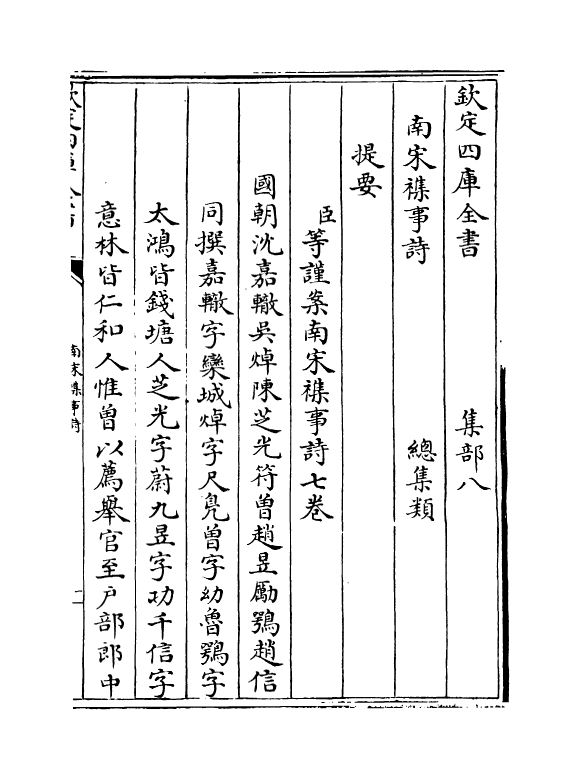 欽定四庫全書　集部八
南宋襍事詩　總集類
提要
臣等謹案南宋襍事詩七卷
國朝沈嘉轍吳焯陳芝光符曾趙昱厲鶚趙信
同撰嘉轍字欒城焯字尺鳧曾字幼魯鶚字
太鴻皆錢塘人芝光字蔚九昱字功千信字
意林皆仁和人惟曾以薦舉官至戶部郎中
欽定四庫全書
南宋襍事詩
二